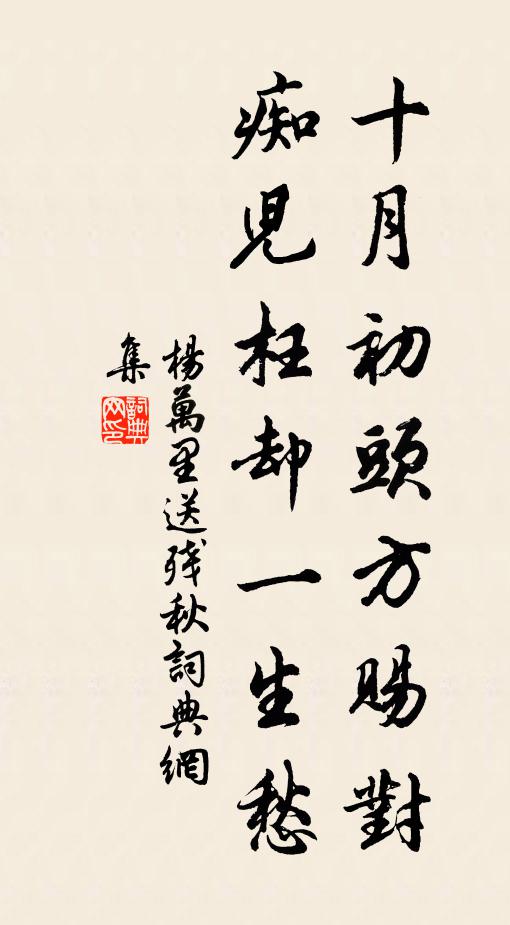 十月初頭方賜對
痴児枉却一生愁
楊萬里送残秋詞典網
集
詞典网印